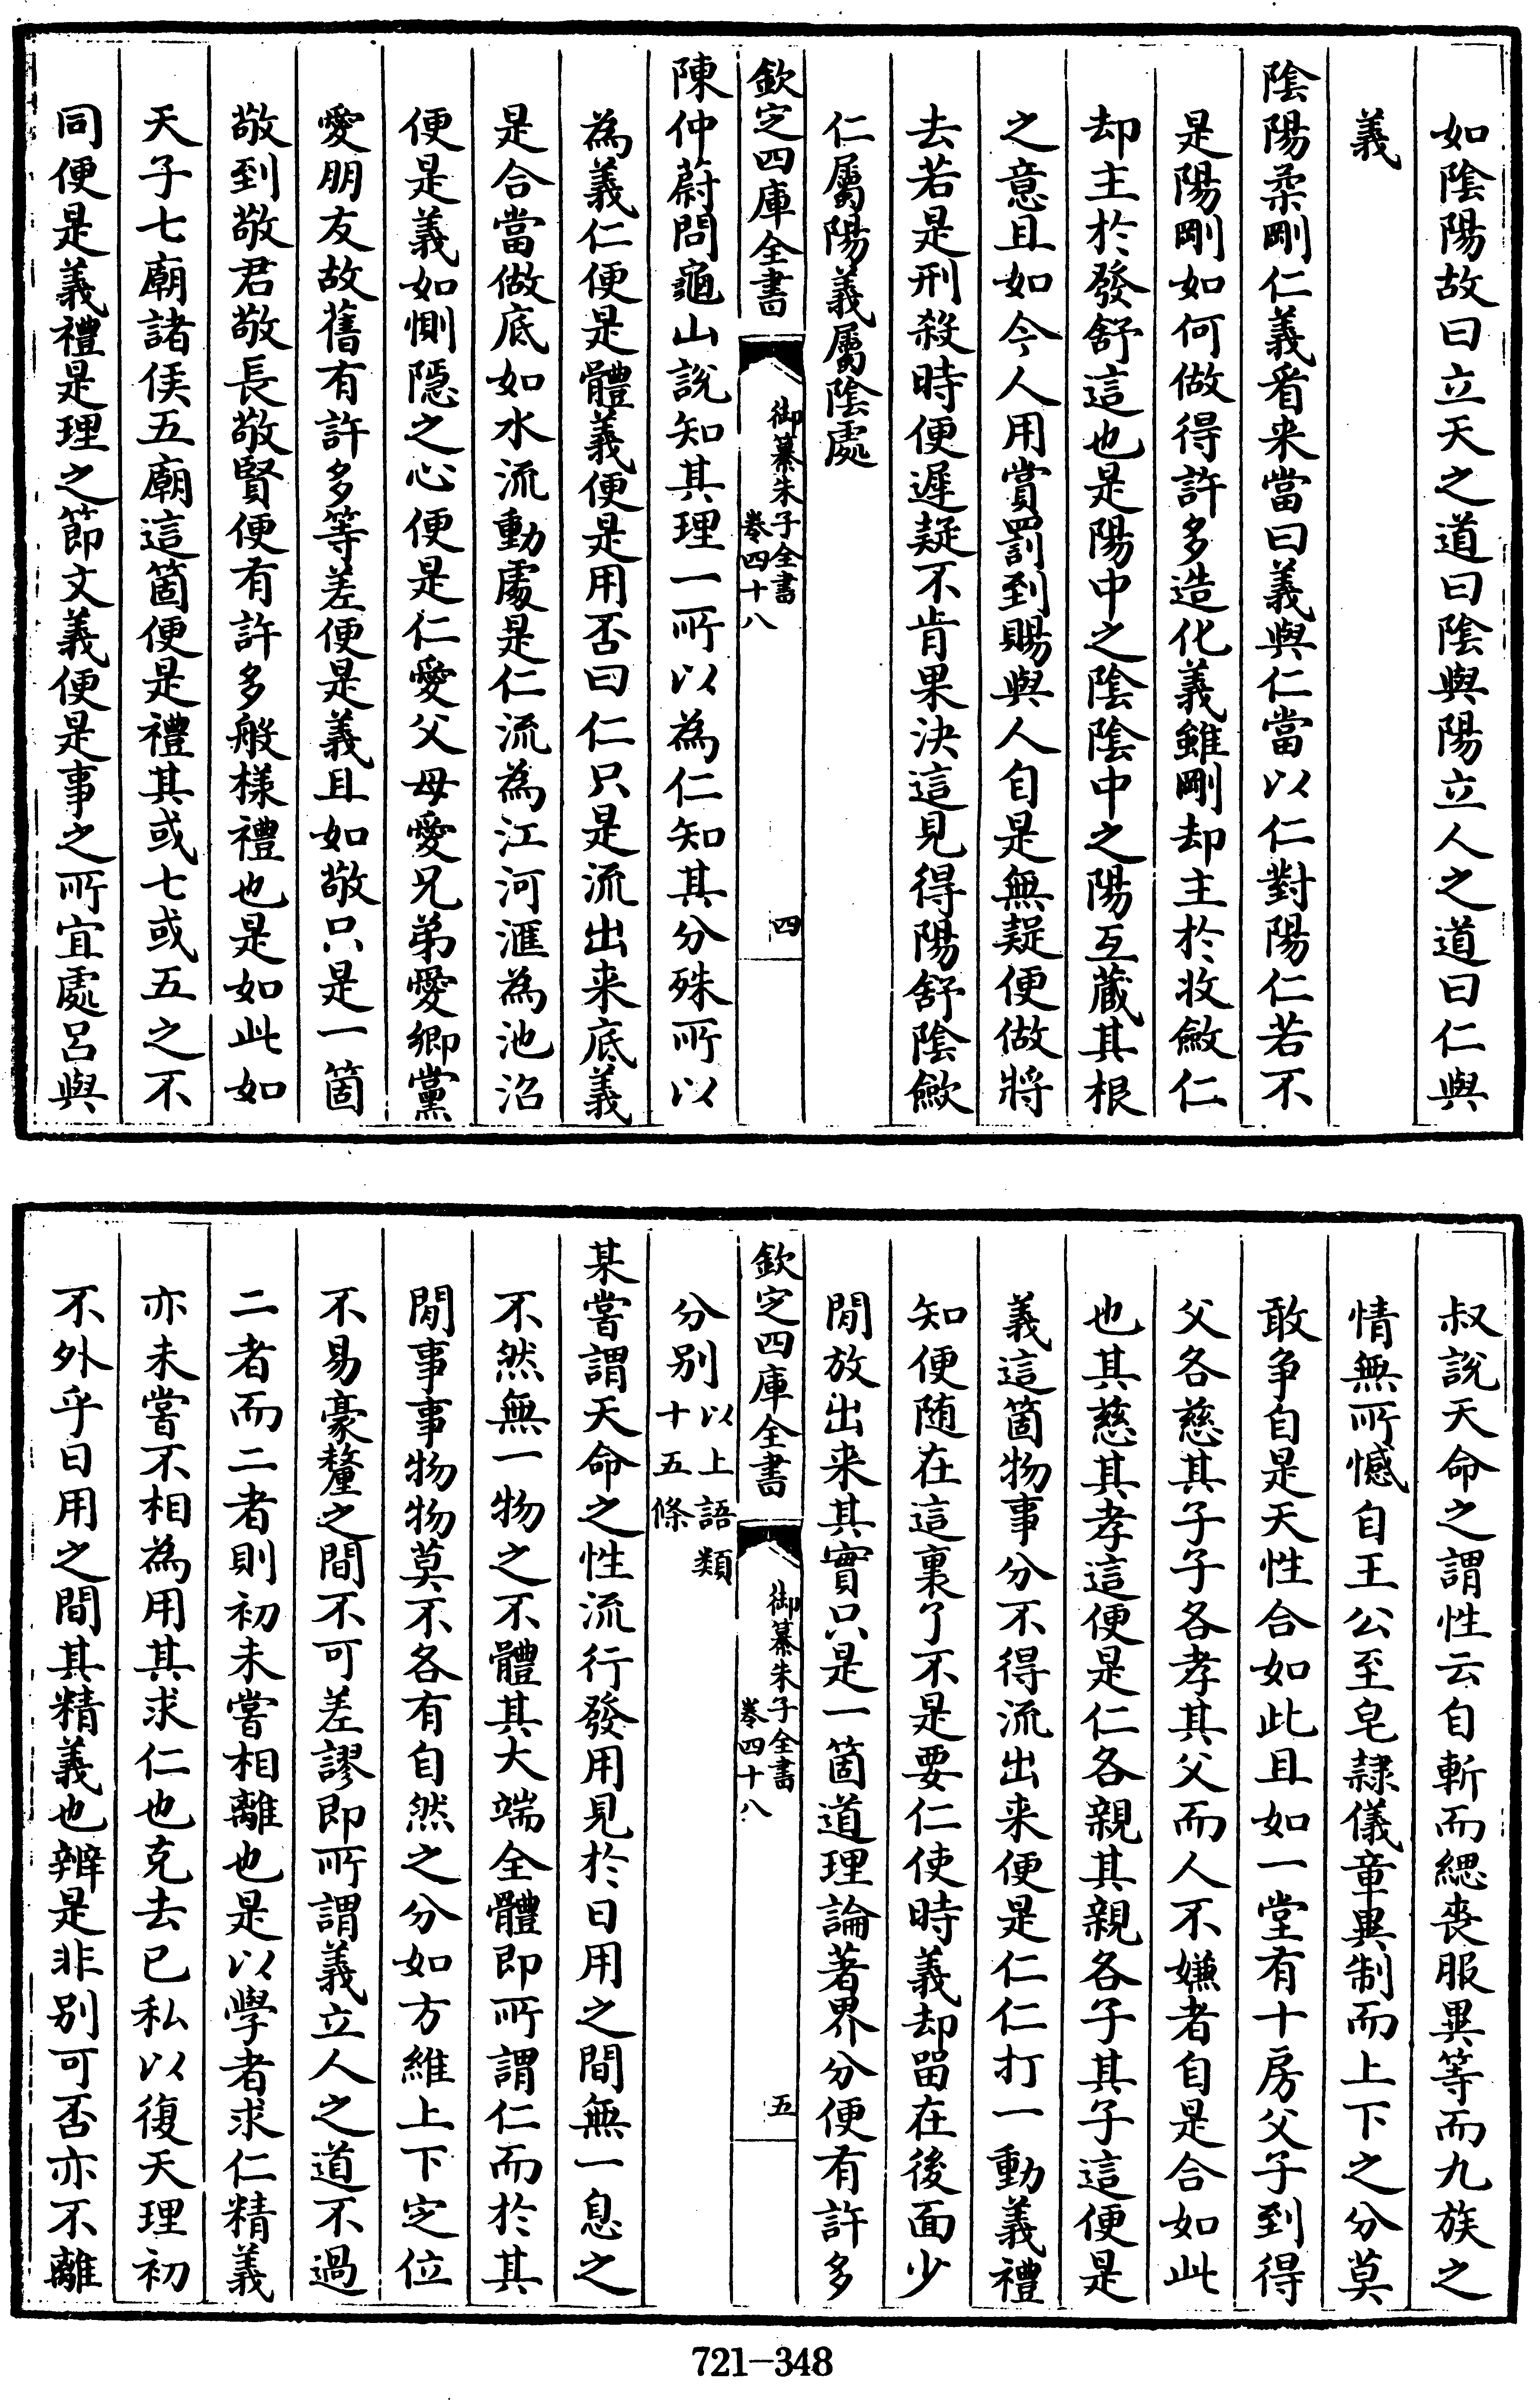 如陰陽故曰立天之道曰陰與陽立人之道曰仁與
義
陰陽柔剛仁義看来當曰義與仁當以仁對陽仁若不
是陽剛如何做得許多造化義雖剛却主於收斂仁
却主於發舒這也是陽中之陰陰中之陽互藏其根
之意且如今人用賞罰到賜與人自是無疑便做將
去若是刑殺時便遲疑不肯果決這見得陽舒陰斂
仁屬陽義屬陰處
欽定四庫全書
御纂朱子全書
卷四十八
四
陳仲蔚問龜山說知其理一所以為仁知其分殊所以
為義仁便是體義便是用否曰仁只是流出来底義
是合當做底如水流動處是仁流為江河滙為池沼
便是義如惻隠之心便是仁愛父母愛兄弟愛鄉黨
愛朋友故舊有許多等差便是義且如敬只是一箇
敬到敬君敬長敬賢便有許多般様禮也是如此如
天子七廟諸侯五廟這箇便是禮其或七或五之不
同便是義禮是理之節文義便是事之所宜處呂與
叔說天命之謂性云自斬而緦喪服異等而九族之
情無所憾自王公至皂隷儀章異制而上下之分莫
敢争自是天性合如此且如一堂有十房父子到得
父各慈其子子各孝其父而人不嫌者自是合如此
也其慈其孝這便是仁各親其親各子其子這便是
義這箇物事分不得流出来便是仁仁打一動義禮
知便随在這裏了不是要仁使時義却留在後面少
閒放出来其實只是一箇道理論著界分便有許多
欽定四庫全書
御纂朱子全書
卷四十八
五
分別以上語類
十五條
某嘗謂天命之性流行發用見於日用之間無一息之
不然無一物之不體其大端全體即所謂仁而於其
閒事事物物莫不各有自然之分如方維上下定位
不易豪釐之間不可差謬即所謂義立人之道不過
二者而二者則初未嘗相離也是以學者求仁精義
亦未嘗不相為用其求仁也克去已私以復天理初
不外乎日用之間其精義也辨是非別可否亦不離
721-348